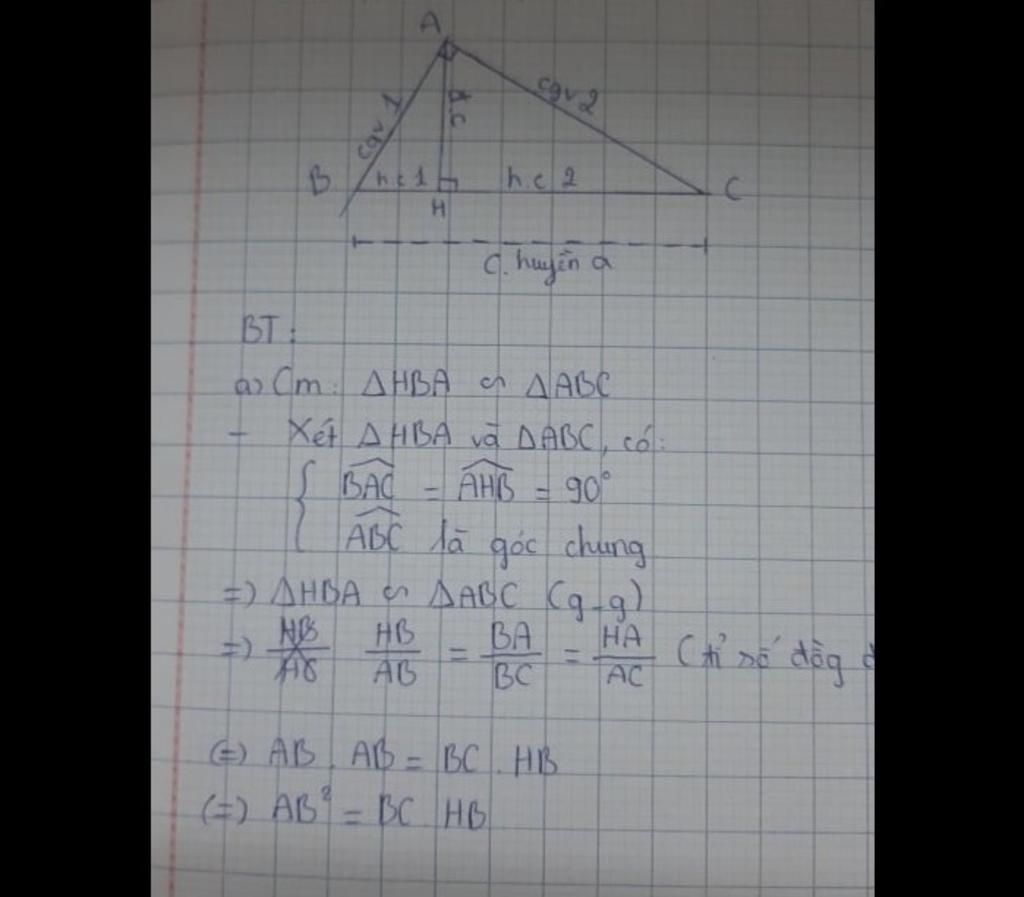 A
cgv 1
đ.c
cgv 2
B
h.c 1
h.c 2
C
H
C. huyền a
BT:
a) Cm: ΔHBA ∽ ΔABC
- Xét ΔHBA và ΔABC, có:
{ \widehat{BAC} = \widehat{AHB} = 90°
\widehat{ABC} là góc chung
=) ΔHBA ∽ ΔABC (g-g)
=) HB/AB = BA/BC = HA/AC (tỉ số đồg
(=) AB . AB = BC . HB
(=) AB² = BC HB